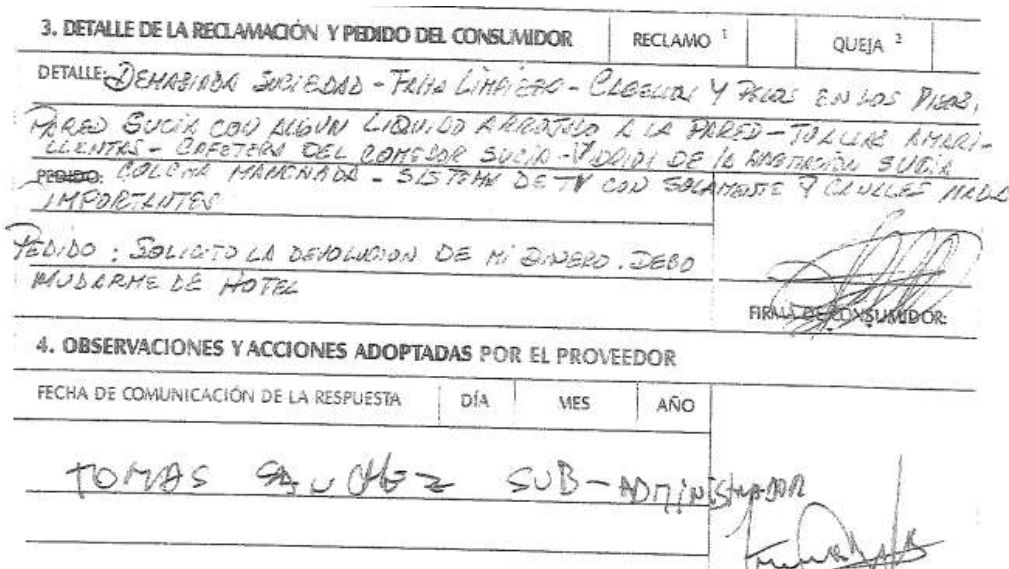 3. DETALLE DE LA RECLAMACIÓN Y PEDIDO DEL CONSUMIDOR RECLAMO 1 QUEJA 2
DETALLE: DEMASIADA SUCIEDAD - FALTA LIMPIEZA - CABELLOS Y PELOS EN LOS PISOS,
PARED SUCIA CON ALGUN LIQUIDO ARROJADO A LA PARED - TOALLAS AMARI-
LLENTAS - CAFETERA DEL COMEDOR SUCIA - VIDRIOS DE LA HABITACION SUCIA
PEDIDO: COLCHA MANCHADA - SISTEMA DE TV CON SOLAMENTE 7 CANALES NADA
IMPORTANTES
PEDIDO: SOLICITO LA DEVOLUCION DE MI DINERO. DEBO
MUDARME DE HOTEL
FIRMA DE CONSUMIDOR:
4. OBSERVACIONES Y ACCIONES ADOPTADAS POR EL PROVEEDOR
FECHA DE COMUNICACIÓN DE LA RESPUESTA DÍA MES AÑO
TOMAS SANCHEZ SUB-ADMINISTRADOR